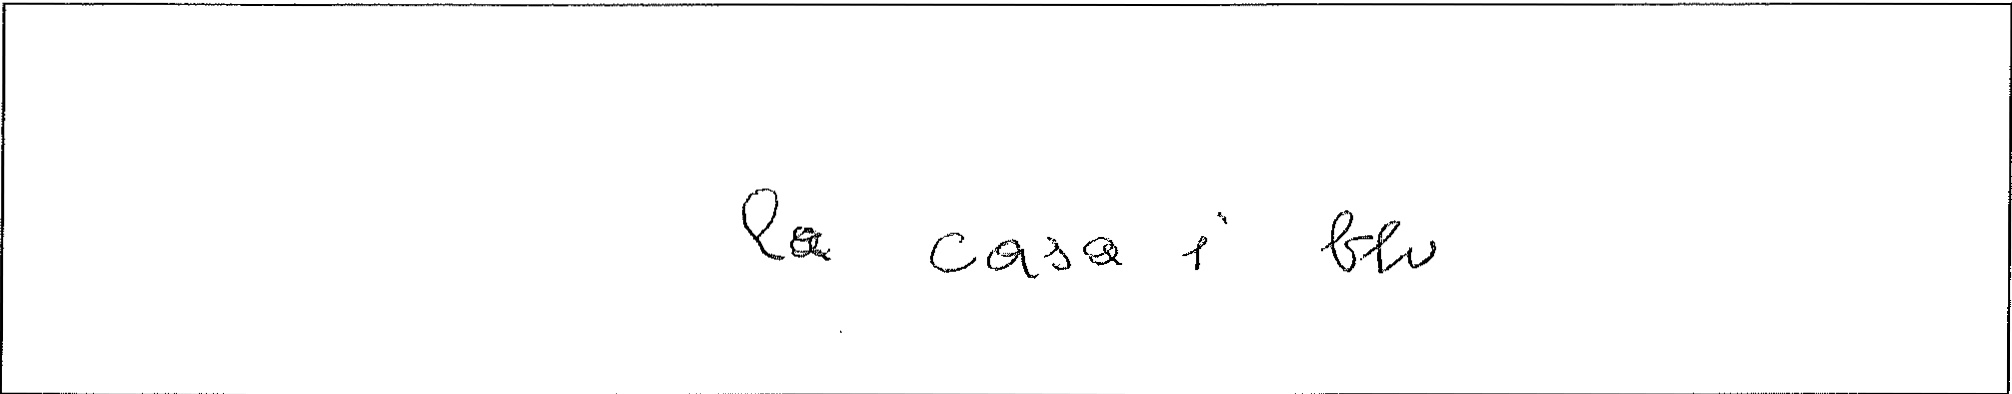 la casa è blu